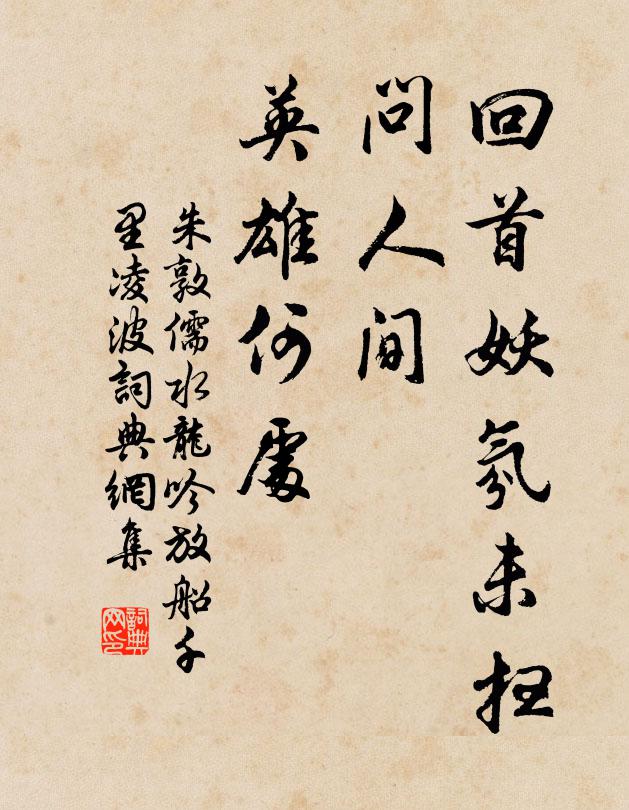 回首妖氛未扫
問人間
英雄何處
朱敦儒水龍吟放船千
里凌波詞典網集
詞典
网印